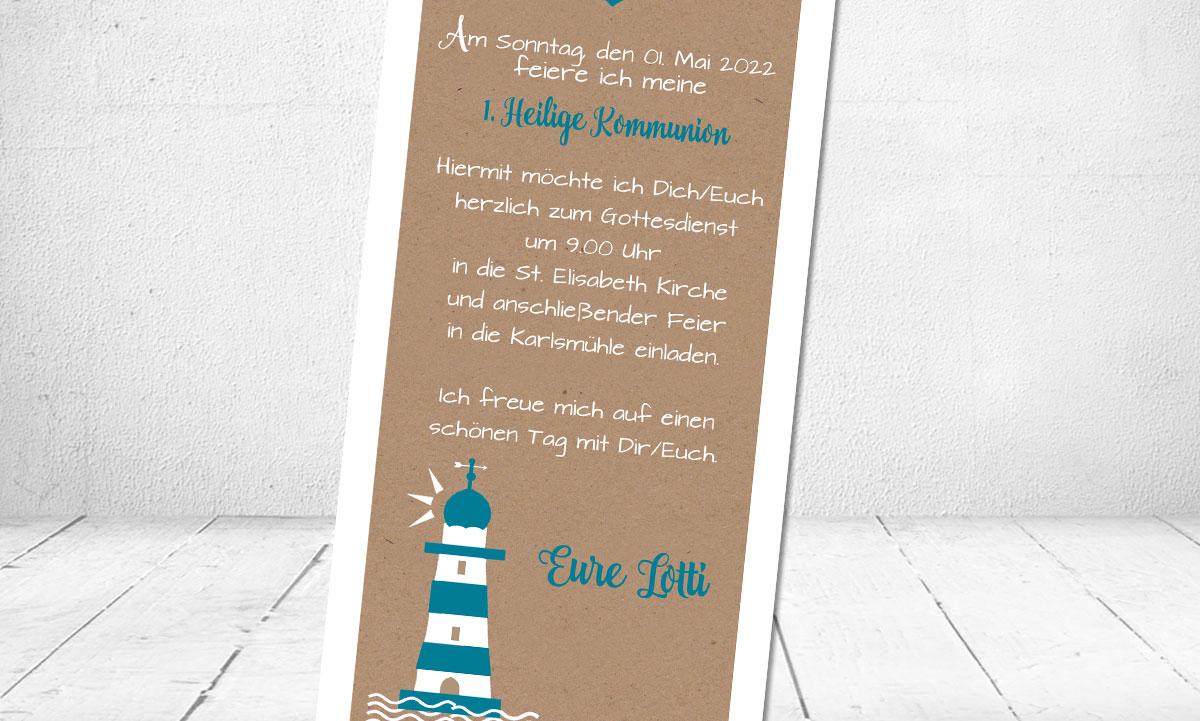 Am Sonntag, den 01. Mai 2022
feiere ich meine
1. Heilige Kommunion
Hiermit möchte ich Dich/Euch
herzlich zum Gottesdienst
um 9.00 Uhr
in die St. Elisabeth Kirche
und anschließender Feier
in die Karlsmühle einladen.
Ich freue mich auf einen
schönen Tag mit Dir/Euch.
Eure Lotti